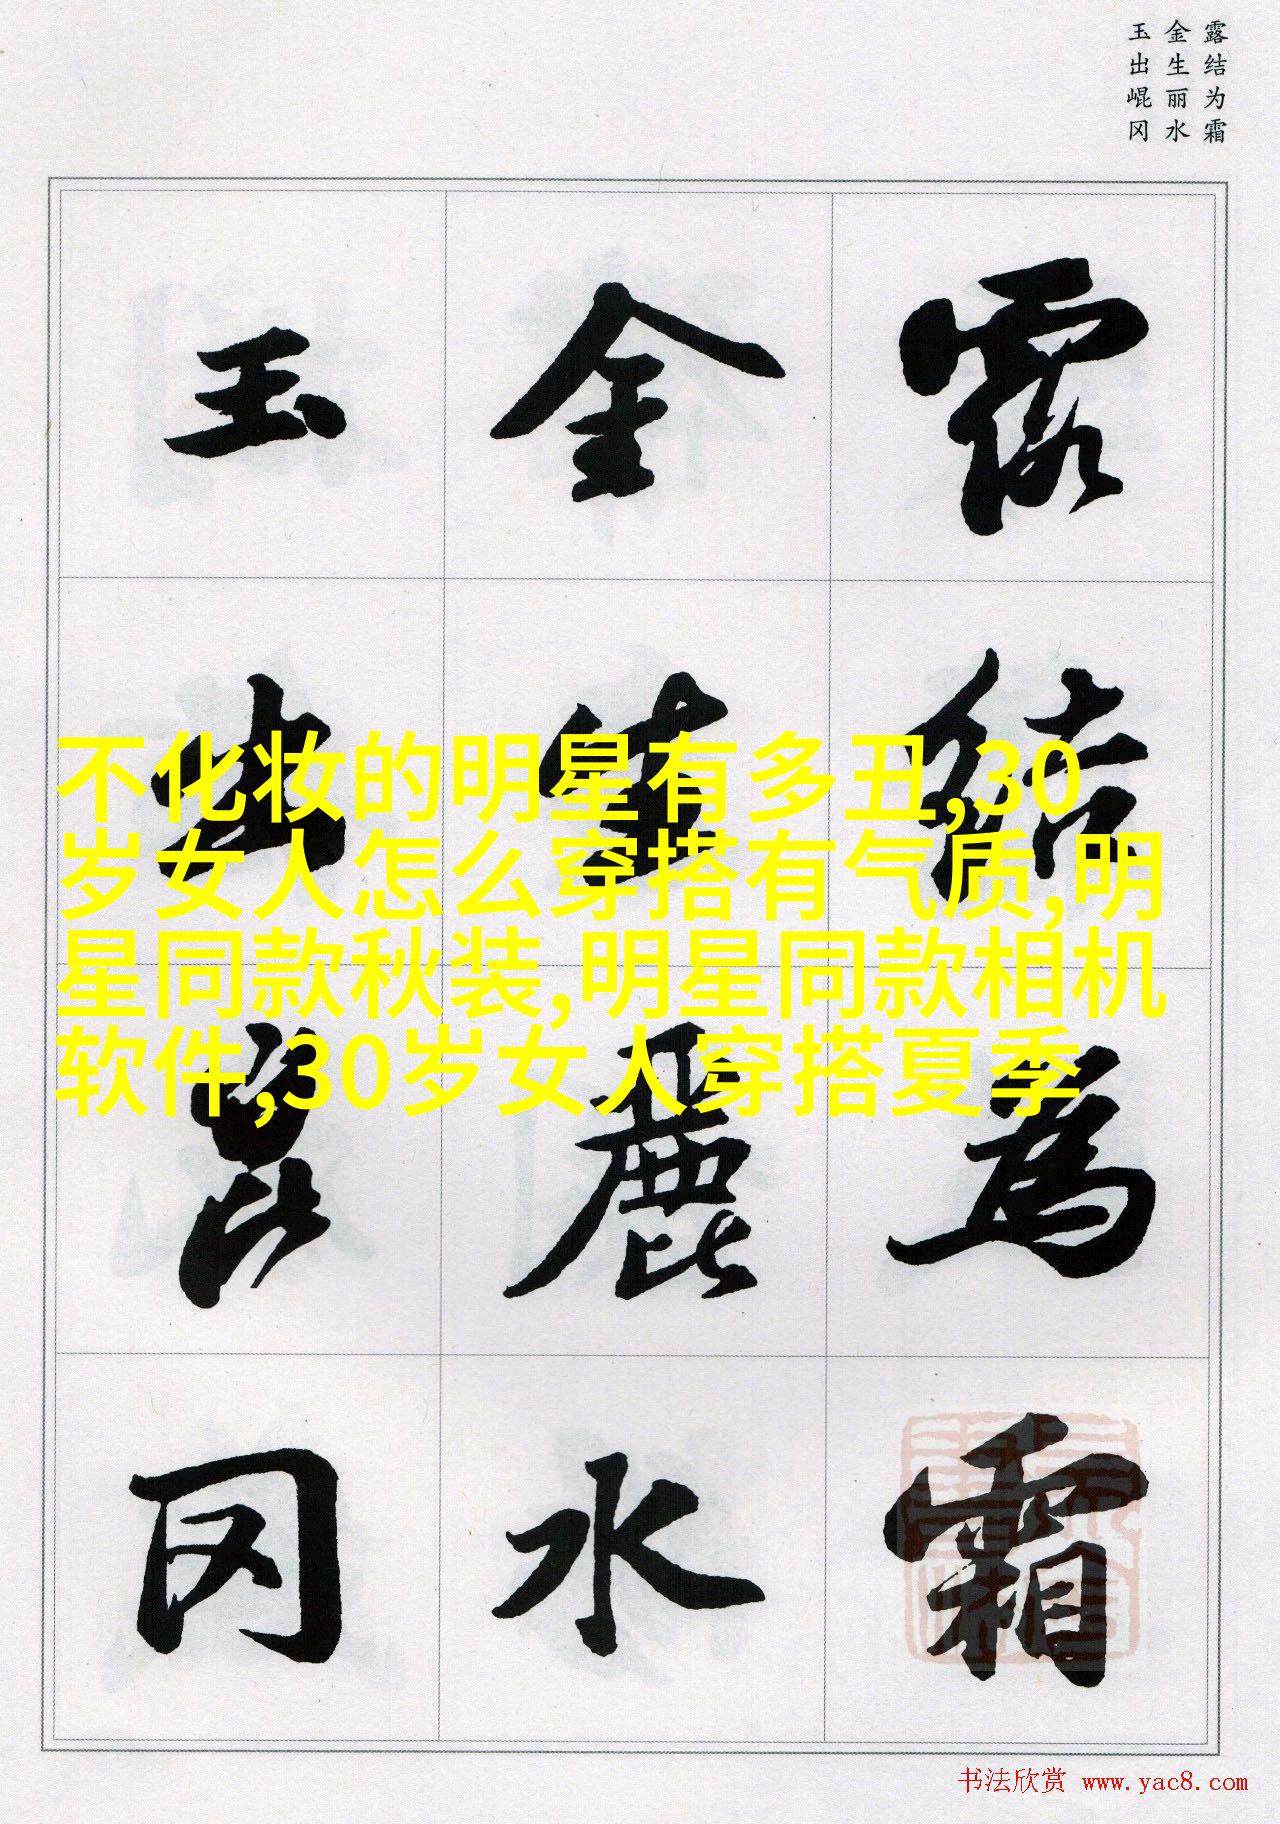 露结为霜
金生丽水
玉出崐冈
露结為霜
金生麗水
玉出崑冈
不化妆的明星有多丑,30
岁女人怎么穿搭有气质,明
星同款秋装,明星同款相机
软件,30岁女人穿搭夏季
书法欣赏 www.yac8.com